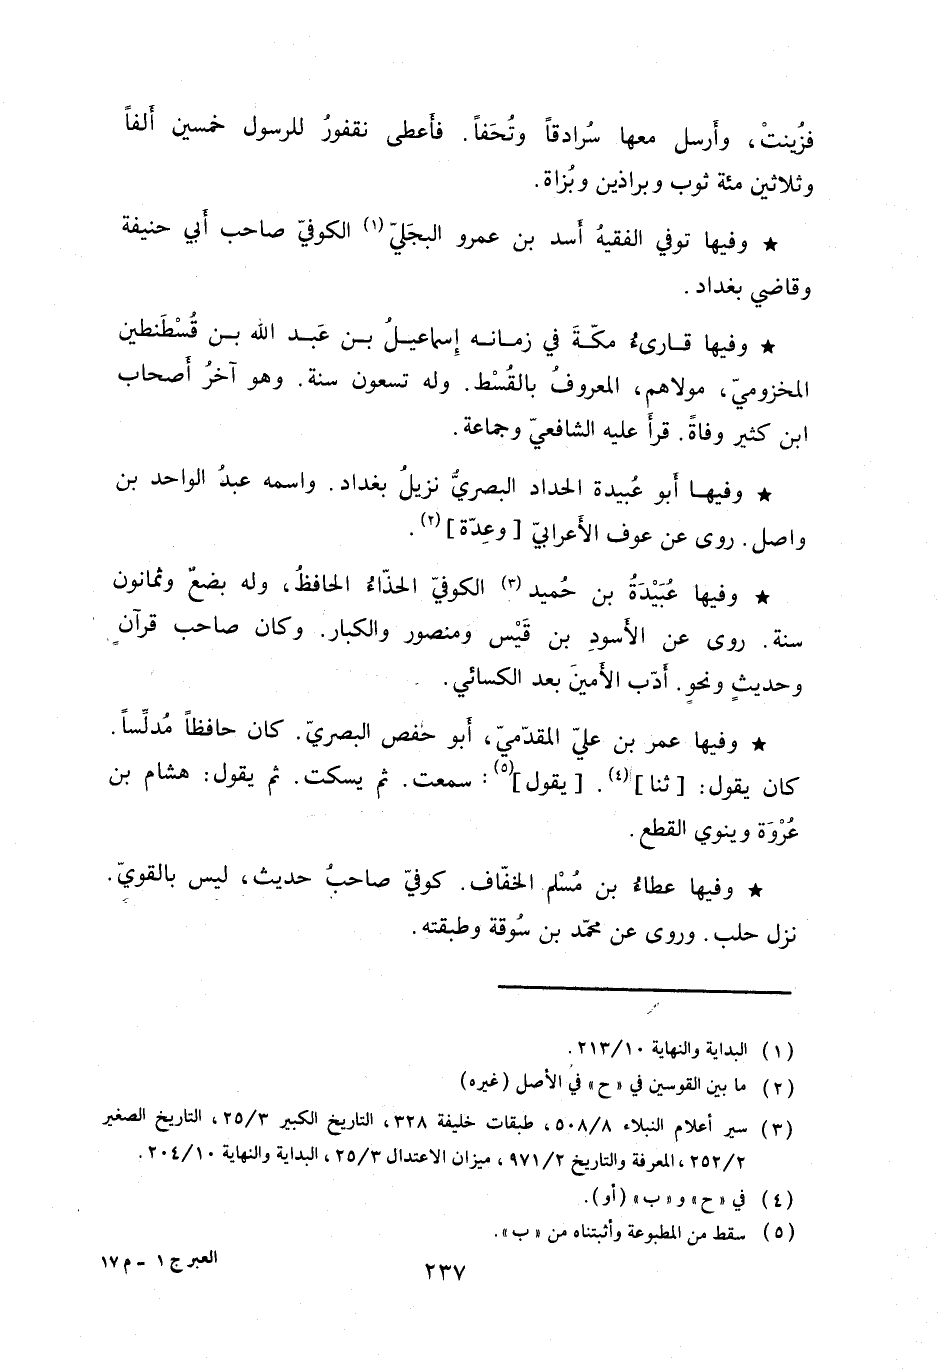 فزُينتْ، وأَرسل معها سُرادقاً وتُحَفاً. فأَعطى نقفورُ للرسول خمسين أَلفاً
وثلاثين مئة ثوب وبراذين وبُزاة.
★ وفيها توفي الفقيهُ أَسد بن عمرو البجَليّ (١) الكوفيّ صاحب أَبي حنيفة
وقاضي بغداد.
★ وفيها قارىءُ مكّةَ في زمانه إِسماعيلُ بن عَبد الله بن قُسْطَنطين
المخزوميّ، مولاهم، المعروفُ بالقُسْط. وله تسعون سنة. وهو آخرُ أَصحاب
ابن كثير وفاةً. قرأَ عليه الشافعيّ وجماعة.
★ وفيها أَبو عُبيدة الحداد البصريُّ نزيلُ بغداد. واسمه عبدُ الواحد بن
واصل. روى عن عوف الأَعرابيّ [ وعِدّة ] (٢).
★ وفيها عُبَيْدَةُ بن حُميد (٣) الكوفيّ الحذّاءُ الحافظُ، وله بضعٌ وثمانون
سنة. روى عن الأَسودِ بن قَيْس ومنصور والكبار. وكان صاحب قرآنٍ
وحديثٍ ونحوٍ. أَدّب الأَمينَ بعد الكسائي.
★ وفيها عمر بن عليّ المقدّميّ، أَبو حفص البصريّ. كان حافظاً مُدلِّساً.
كان يقول: [ ثنا ] (٤). [ يقول ] (٥): سمعت. ثم يسكت. ثم يقول: هشام بن
عُرْوَة وينوي القطع.
★ وفيها عطاءُ بن مُسْلم الخفّاف. كوفيّ صاحبُ حديث، ليس بالقويّ.
نزل حلب. وروى عن محمّد بن سُوقة وطبقته.
(١) البداية والنهاية ٢١٣/١٠.
(٢) ما بين القوسين في «ح» في الأصل (غيره)
(٣) سير أعلام النبلاء ٥٠٨/٨، طبقات خليفة ٣٢٨، التاريخ الكبير ٢٥/٣، التاريخ الصغير
٢٥٢/٢، المعرفة والتاريخ ٩٧١/٢، ميزان الاعتدال ٢٥/٣، البداية والنهاية ٢٠٤/١٠.
(٤) في «ح» و«ب» (أو).
(٥) سقط من المطبوعة وأثبتناه من «ب».
العبر ج ١ - م ١٧
٢٣٧